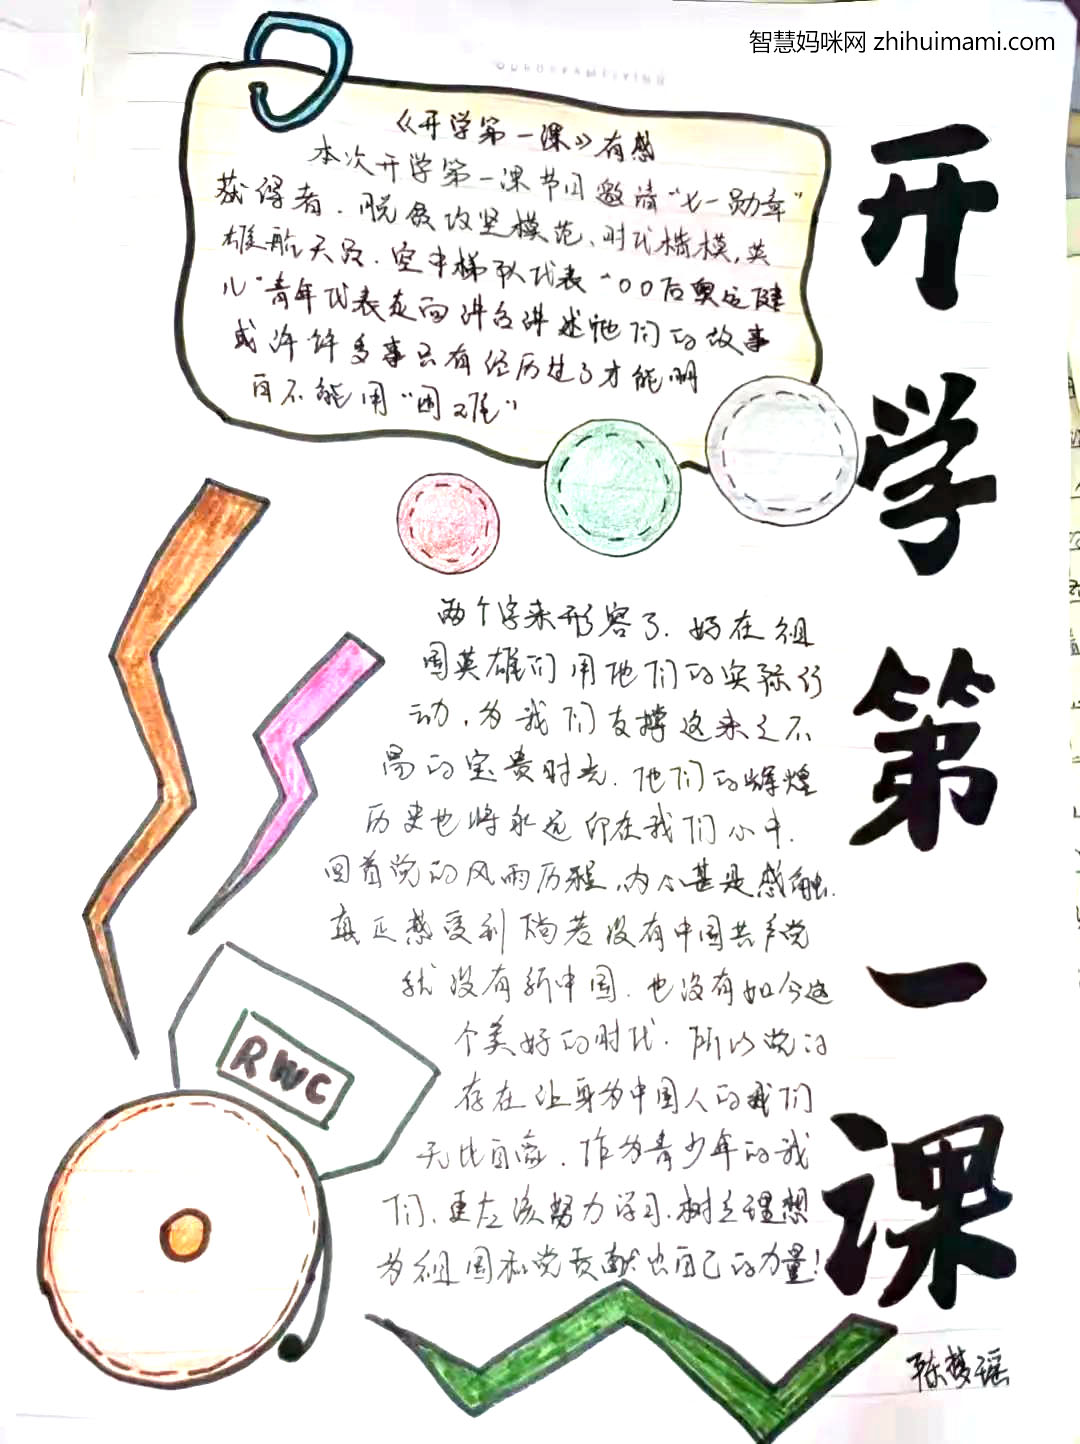 智慧妈咪网 zhihuimami.com
开学第一课
《开学第一课》有感
本次开学第一课节目邀请“七一勋章”
获得者、脱贫攻坚模范、时代楷模,英
雄航天员、空中梯队代表“00后奥运健
儿”青年代表走向讲台讲述他们的故事
或许许多事只有经历过了才能明
白不能用“困难”
两个字来形容了.好在祖
国英雄们用他们的实际行
动,为我们支撑这来之不
易的宝贵时光.他们的辉煌
历史也将永远印在我们心中.
回首党的风雨历程,内心甚是感触.
真正感受到倘若没有中国共产党
就没有新中国.也没有如今这
个美好的时代.所以党的
存在让身为中国人的我们
无比自豪.作为青少年的我
们,更应该努力学习.树立理想
为祖国和党贡献出自己的力量!
RWC
陈梦瑶